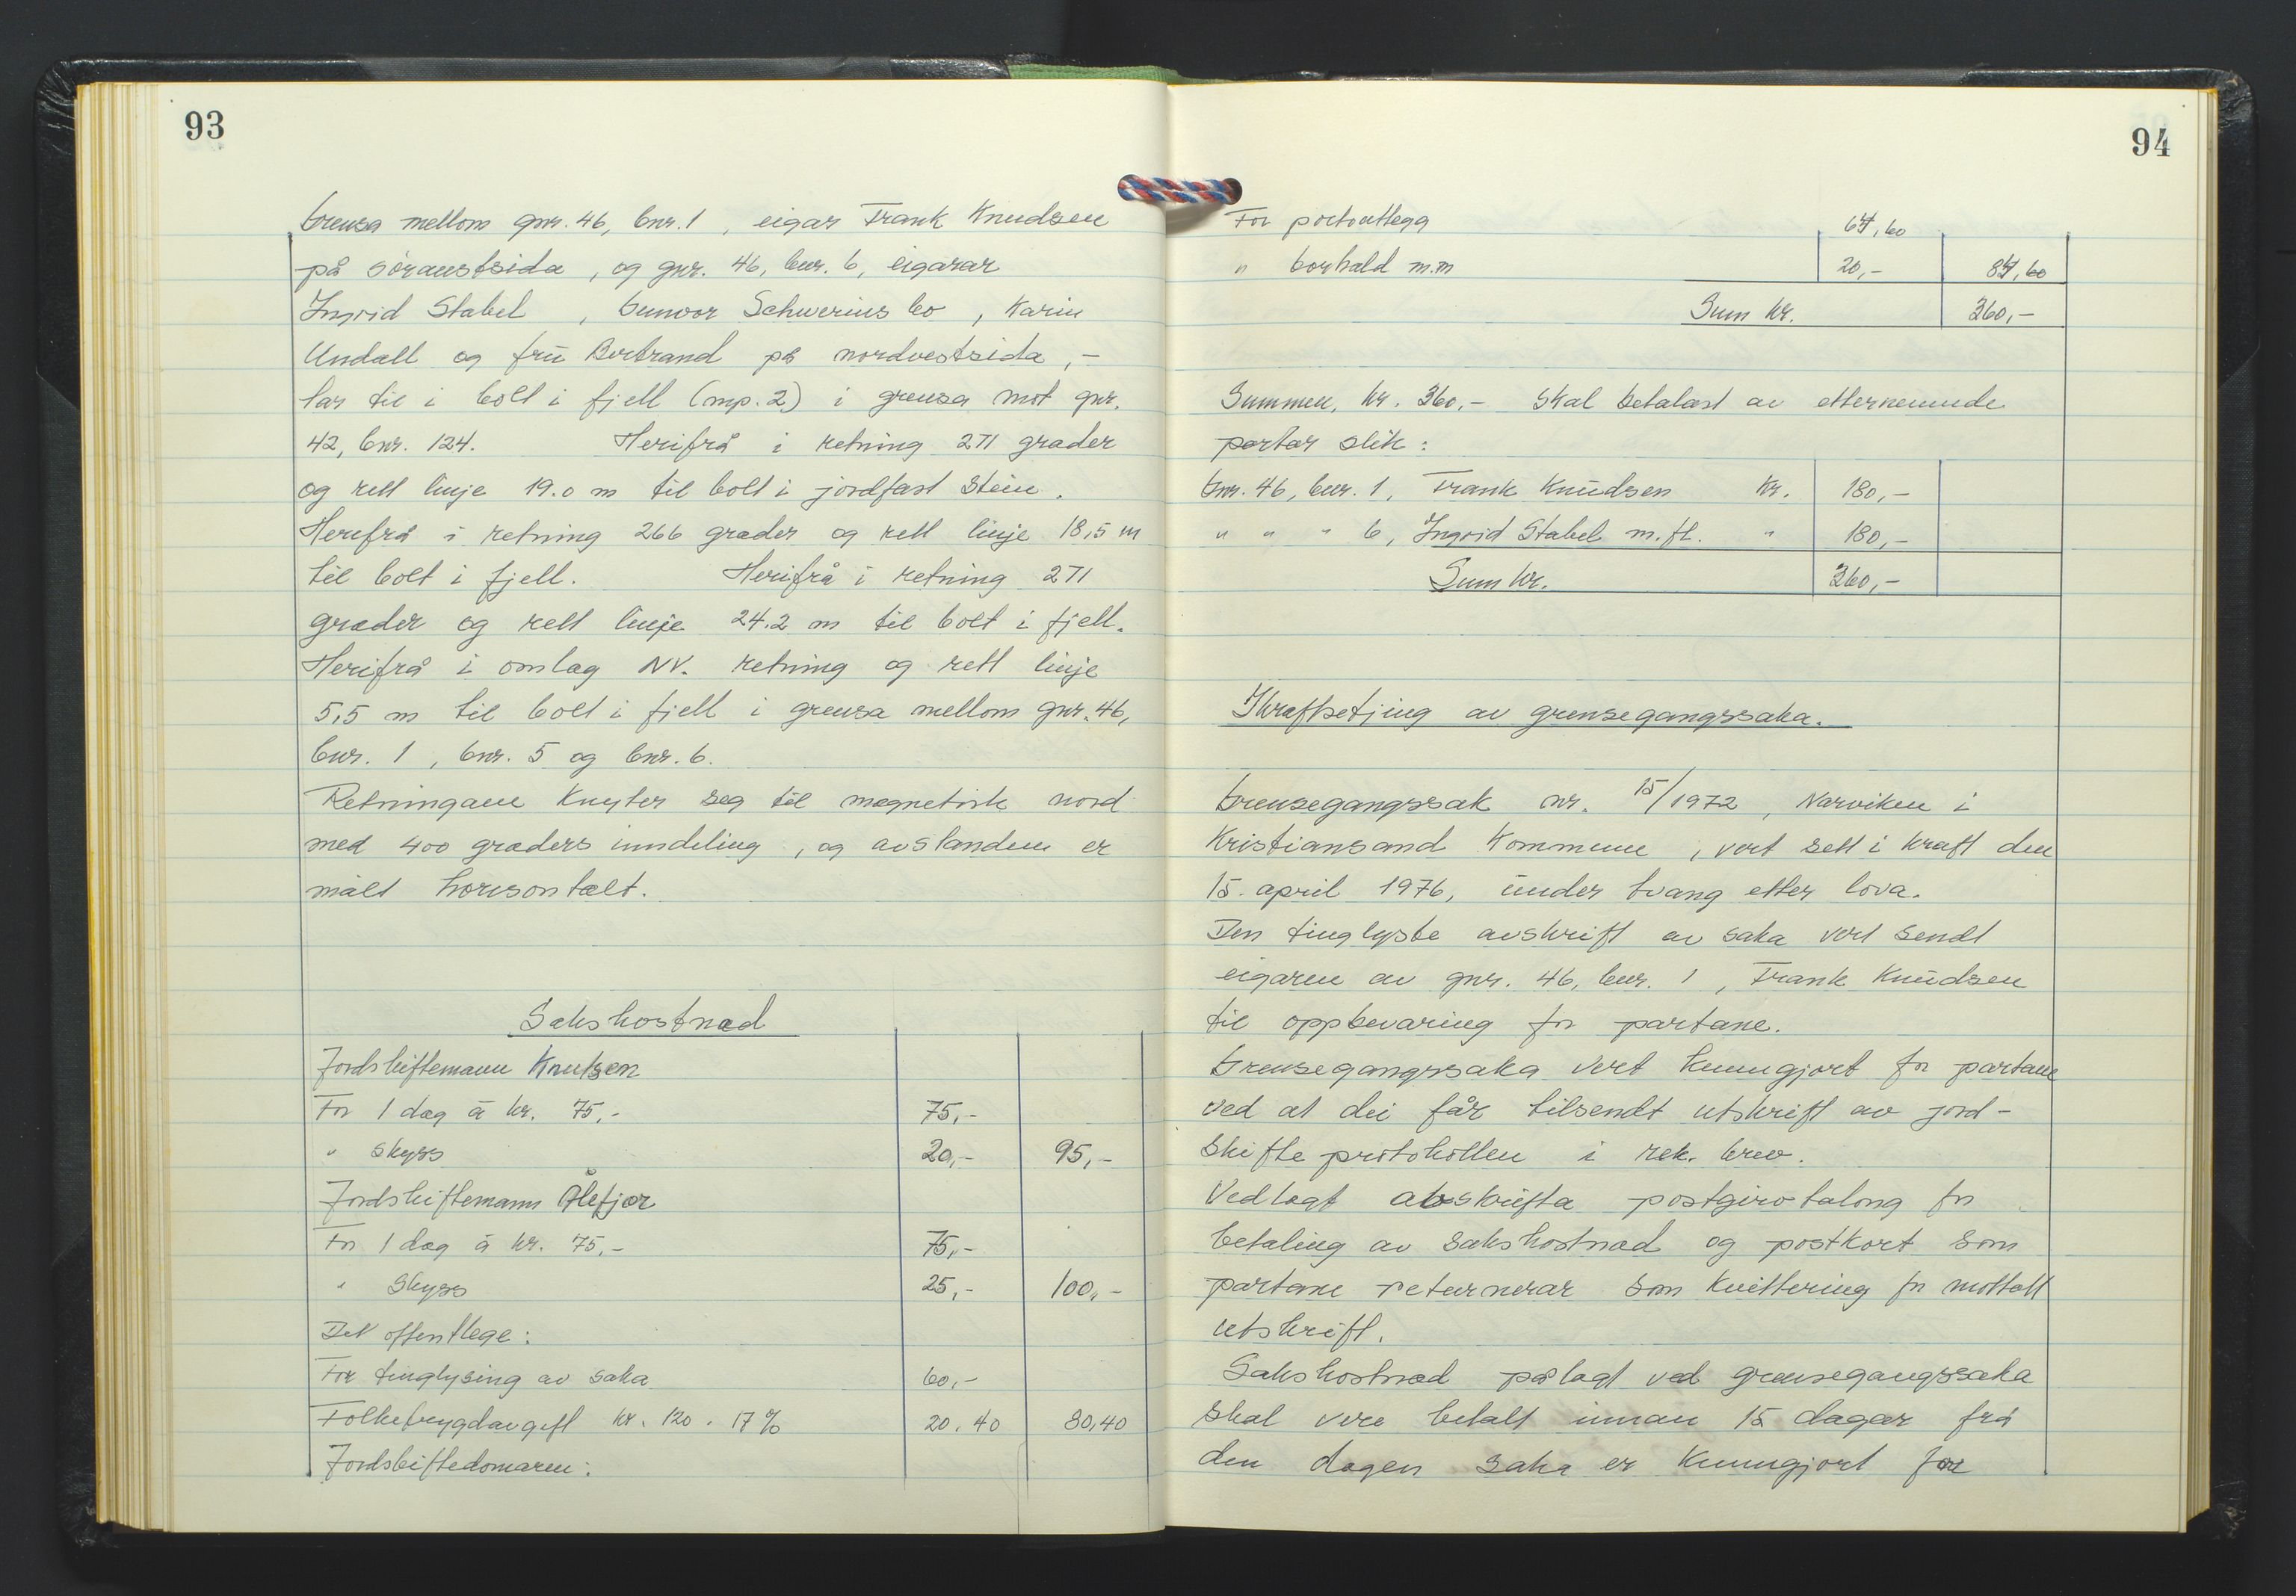 93
Grensa mellom gnr. 46, bnr. 1, eigar Frank Knudsen
på søraustsida, og gnr. 46, bnr. 6, eigarar
Ingrid Stabel, Gunvor Schwerins bo, Karin
Undall og fru Bertrand på nordvestsida, -
tar til i bolt i fjell (mp. 2) i grensa mot gnr.
42, bnr. 124. Herifrå i retning 271 grader
og rett linje 19.0 m til bolt i jordfast stein.
Herifrå i retning 266 grader og rett linje 18,5 m
til bolt i fjell. Herifrå i retning 271
grader og rett linje 24.2 m til bolt i fjell.
Herifrå i omlag NV. retning og rett linje
5,5 m til bolt i fjell i grensa mellom gnr. 46,
bnr. 1, bnr. 5 og bnr. 6.
Retningane knyter seg til magnetisk nord
med 400 graders inndeling, og avstanden er
målt horisontalt.
Sakskostnad
Jordskiftemann Knutsen
For 1 dag à kr. 75,- 75,-
" skyss 20,- 95,-
Jordskiftemann Ålefjær
For 1 dag à kr. 75,- 75,-
" Skyss 25,- 100,-
Det offentlege:
For tinglysing av saka 60,-
Folketrygdavgift kr. 120 . 17 % 20.40 80,40
Jordskiftedomaren:
94
For portoutlegg 64,60
" borhald m.m 20,- 84,60
Sum kr. 360,-
Summen, kr. 360,- skal betalast av etternemnde
partar slik:
Gnr. 46, bnr. 1, Frank Knudsen kr. 180,-
" " " 6, Ingrid Stabel m.fl. " 180,-
Sum kr. 360,-
Ikraftsetjing av grensegangssaka.
Grensegangssak nr. 15/1972, Narviken i
Kristiansand kommune, vert sett i kraft den
15. april 1976, under tvang etter lova.
Den tinglyste avskrift av saka vert sendt
eigaren av gnr. 46, bnr. 1, Frank Knudsen
til oppbevaring for partane.
Grensegangssaka vert kunngjort for partane
ved at dei får tilsendt utskrift av jord-
skifteprotokollen i rek. brev.
Vedlagt avskrifta postgirotalong for
betaling av sakskostnad og postkort som
partane returnerar som kvittering for mottatt
utskrift.
Sakskostnad pålagt ved grensegangssaka
skal vere betalt innan 15 dagar frå
den dagen saka er kunngjort for